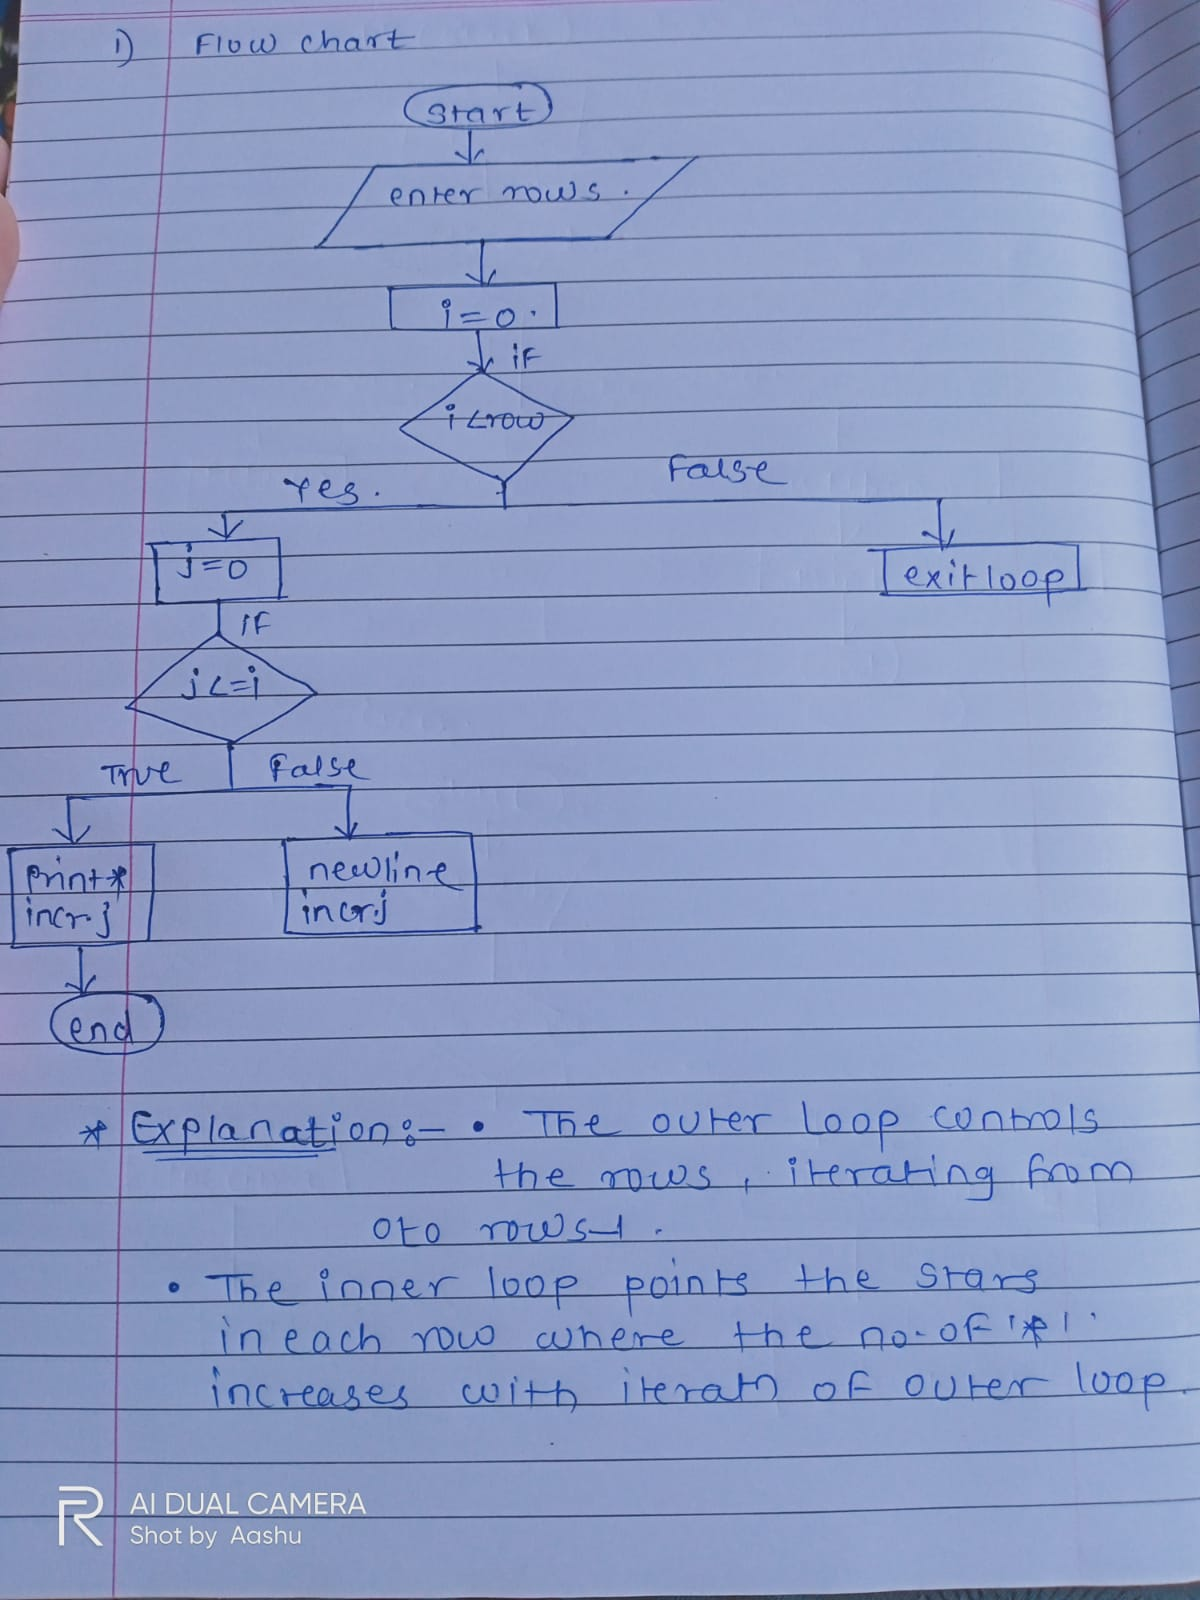 1) Flow chart
Start
enter rows.
i=0.
if
i<row
Yes.
False
j=0
exit loop
if
j<=i
True
False
print *
incr. j
newline
incr.j
end
* Explanation :- • The outer loop controls
the rows, iterating from
0 to rows-1.
• The inner loop points the stars
in each row where the no. of '*'
increases with iteratn of outer loop.
R AI DUAL CAMERA
Shot by Aashu